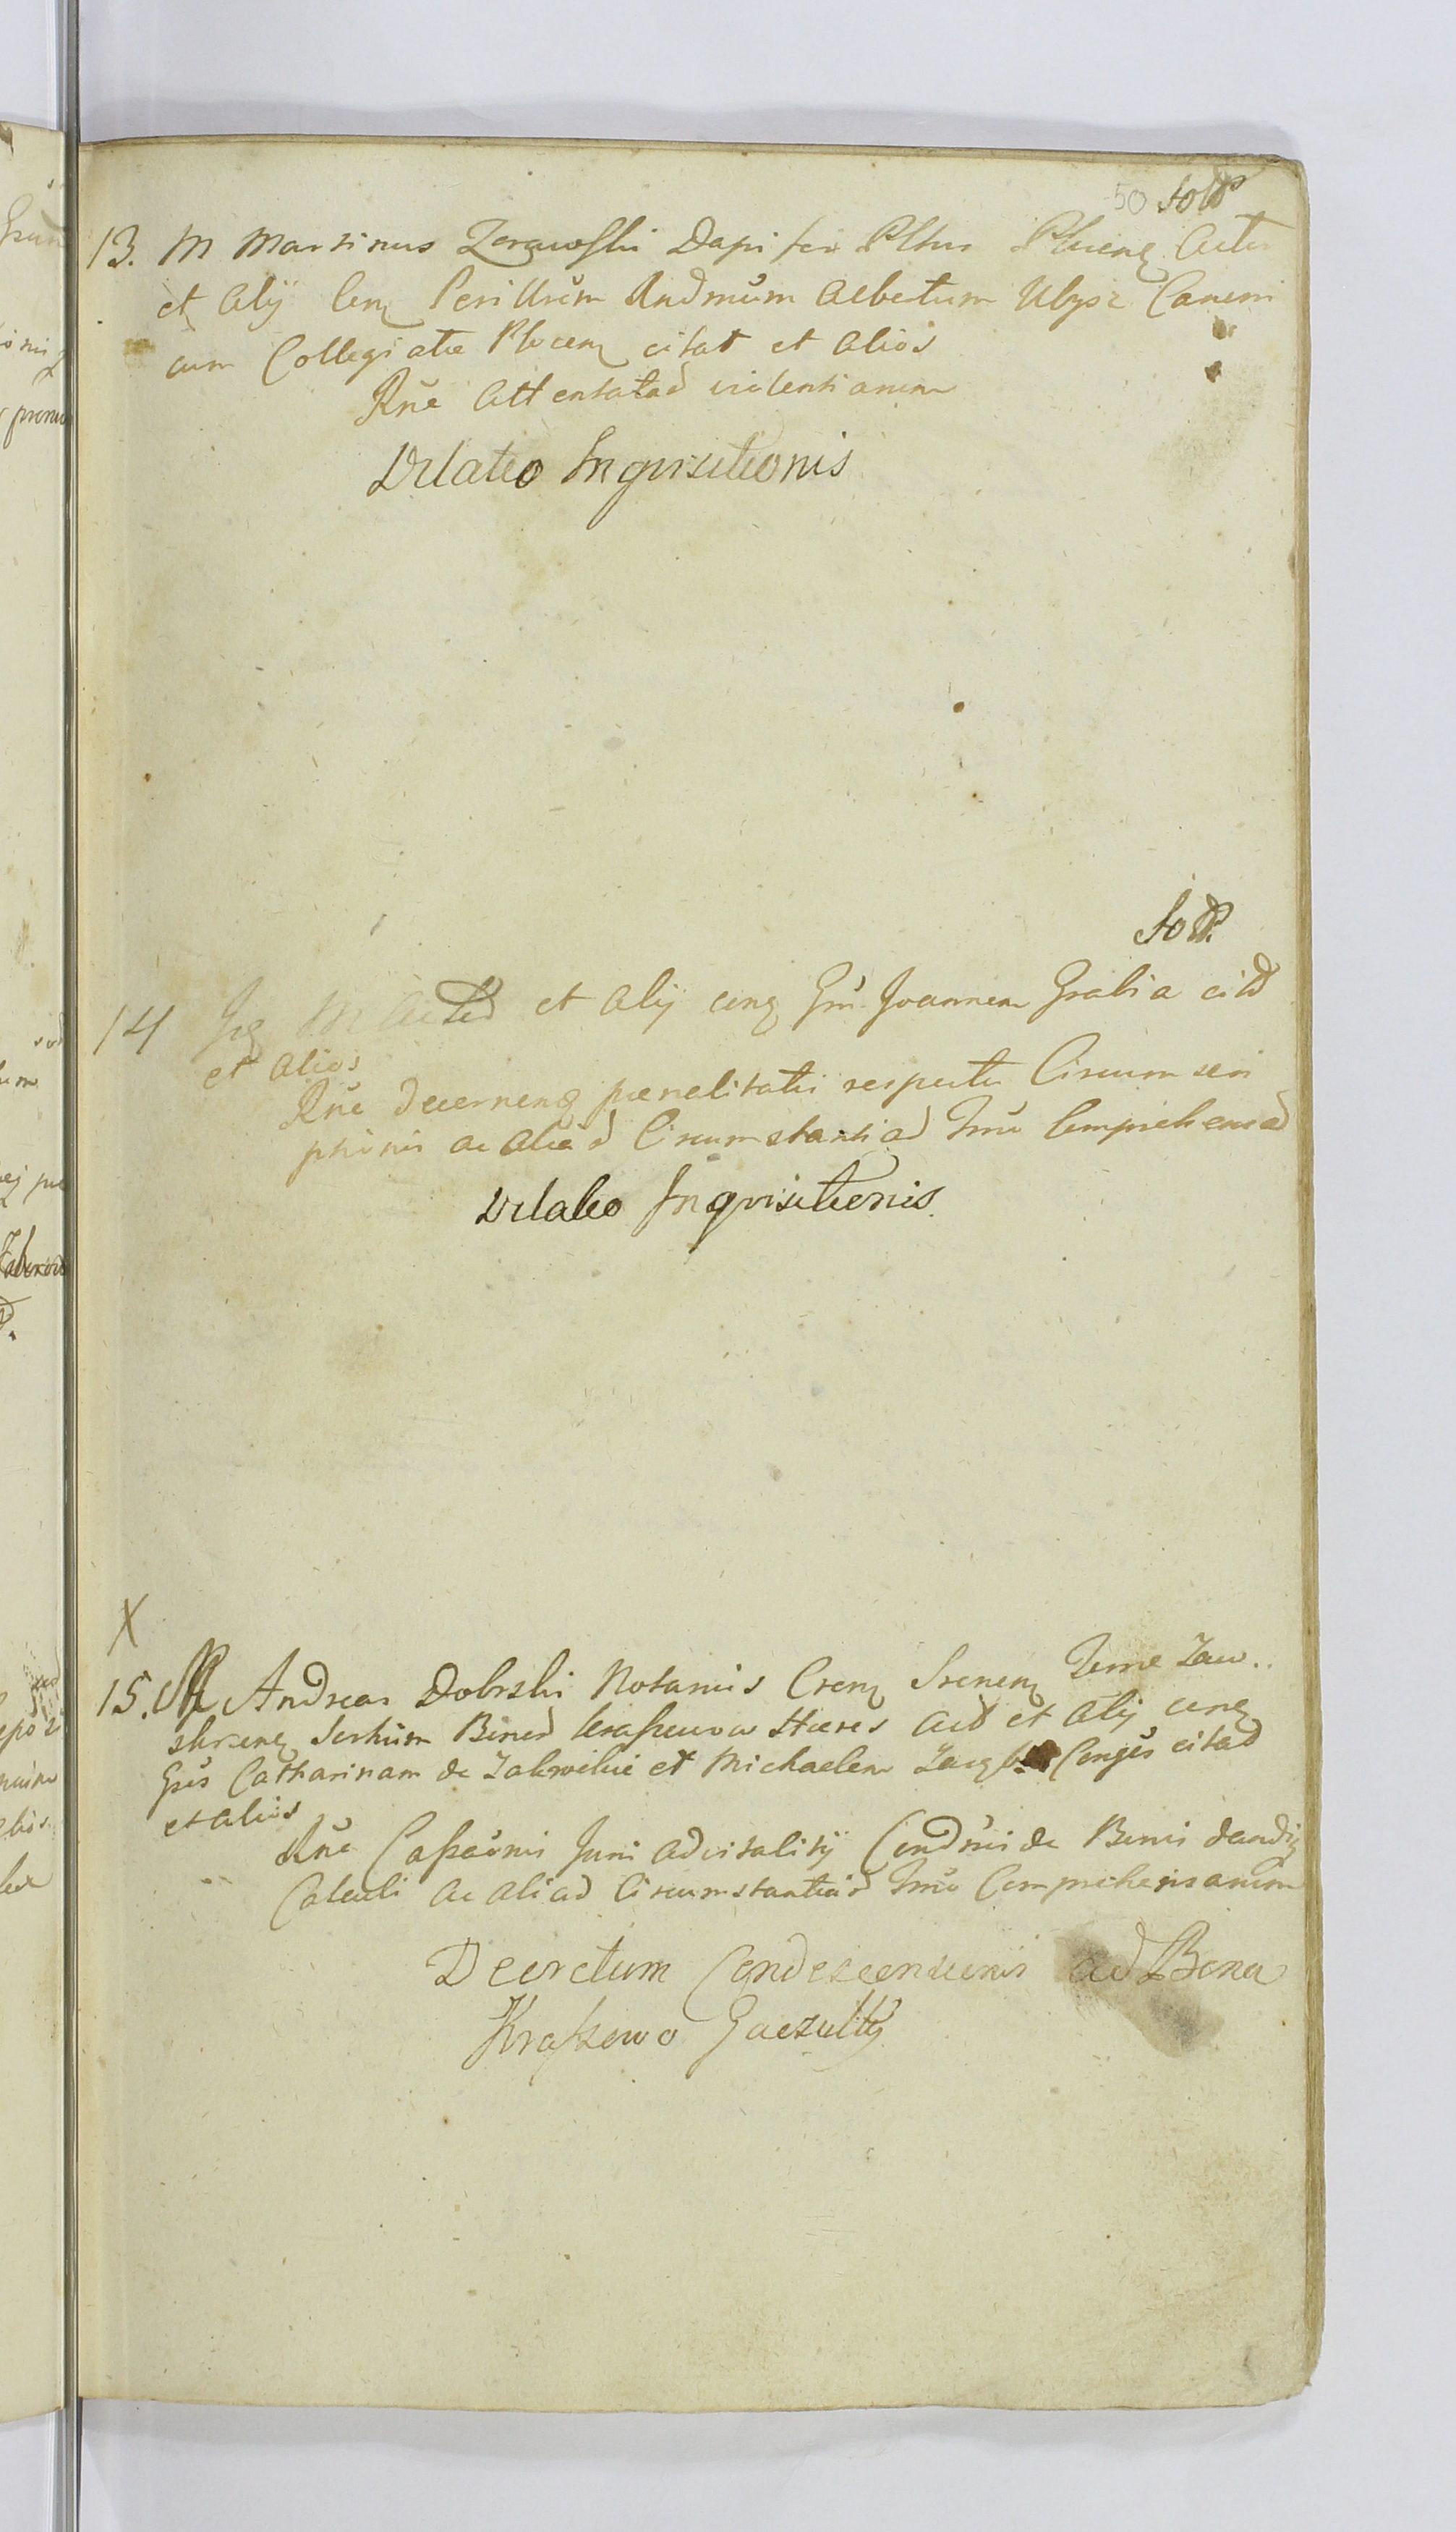 50
13. M Martinus Zorawski Dapifer Pltus Plucenς Actor
et Alij Conς Perillrem Rndmum Albertum Ulysz Canoni
cum Collegiatæ Plocenς citat et Alios
Rñe Attentatad violentiarum
Dilatio Inqvisitionis
14 et Alij conς Gñ Joannem Grabia citd
et Alios
Rñe decernenς pœnalitatis respectu Circumscri
ptionis ac aliad Circumstantiad Imo Comprehensad
Dilatio Inqvisitionis
X
15. M Andreas Dobrski Notarius Crenς Srenenς Terræ Zaw..
skrzenς Sortium Bonord Kraszewo Hæres Actd et Alij conς
Gsos Catharinam de Zakrockie et Michaelem Conges citad
et alios
Rñe Cassaõnis Juris Advitalitij Condñi de Bonis dandi
Calculi ac aliad Circumstantiad Imo Comprehensarum
Decretum Condescensionis ad Bona
Kraszewo Gaczulty